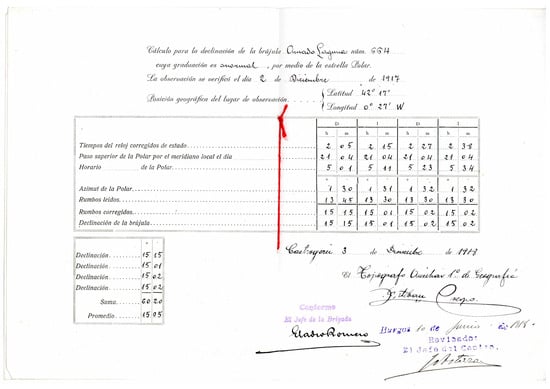 Cálculo para la declinación de la brújula Amado Laguna núm. 664
cuya graduación es anormal, por medio de la estrella Polar.
La observación se verificó el día 2 de Diciembre de 1917
Posición geográfica del lugar de observación. Latitud 42° 17'
Longitud 0° 27' W
D I D I
h m h m h m h m
Tiempos del reloj corregidos de estado 2 05 2 15 2 27 2 38
Paso superior de la Polar por el meridiano local el día 21 04 21 04 21 04 21 04
Horario de la Polar 5 01 5 11 5 23 5 34
Azimut de la Polar 1 30 1 31 1 32 1 32
Rumbos leídos 13 45 13 30 13 30 13 30
Rumbos corregidos 15 15 15 01 15 02 15 02
Declinación de la brújula 15 15 15 01 15 02 15 02
Declinación 15 15
Declinación 15 01
Declinación 15 02
Declinación 15 02
Suma 60 20
Promedio 15 05
3 de Diciembre de 1917
El Topógrafo Auxiliar 1º de Geografía
Esteban Crespo
Conforme
El Jefe de la Brigada
Eladio Romero
Burgos 10 de Junio de 1918.
Revisado:
El Jefe del Centro.